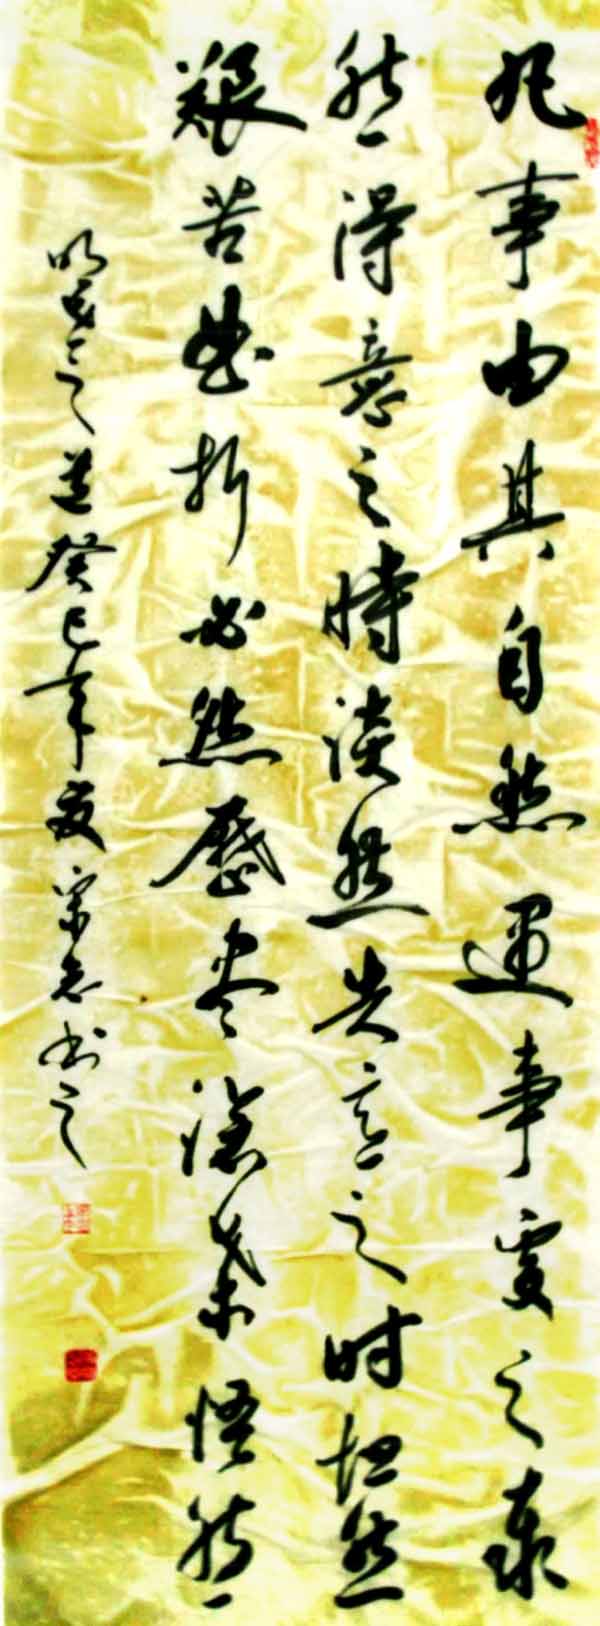 凡事由其自然遇事处之泰
然得意之时淡然失意之时坦然
艰苦曲折必然历尽沧桑悟然
明代人之道癸巳年夏宗志书之